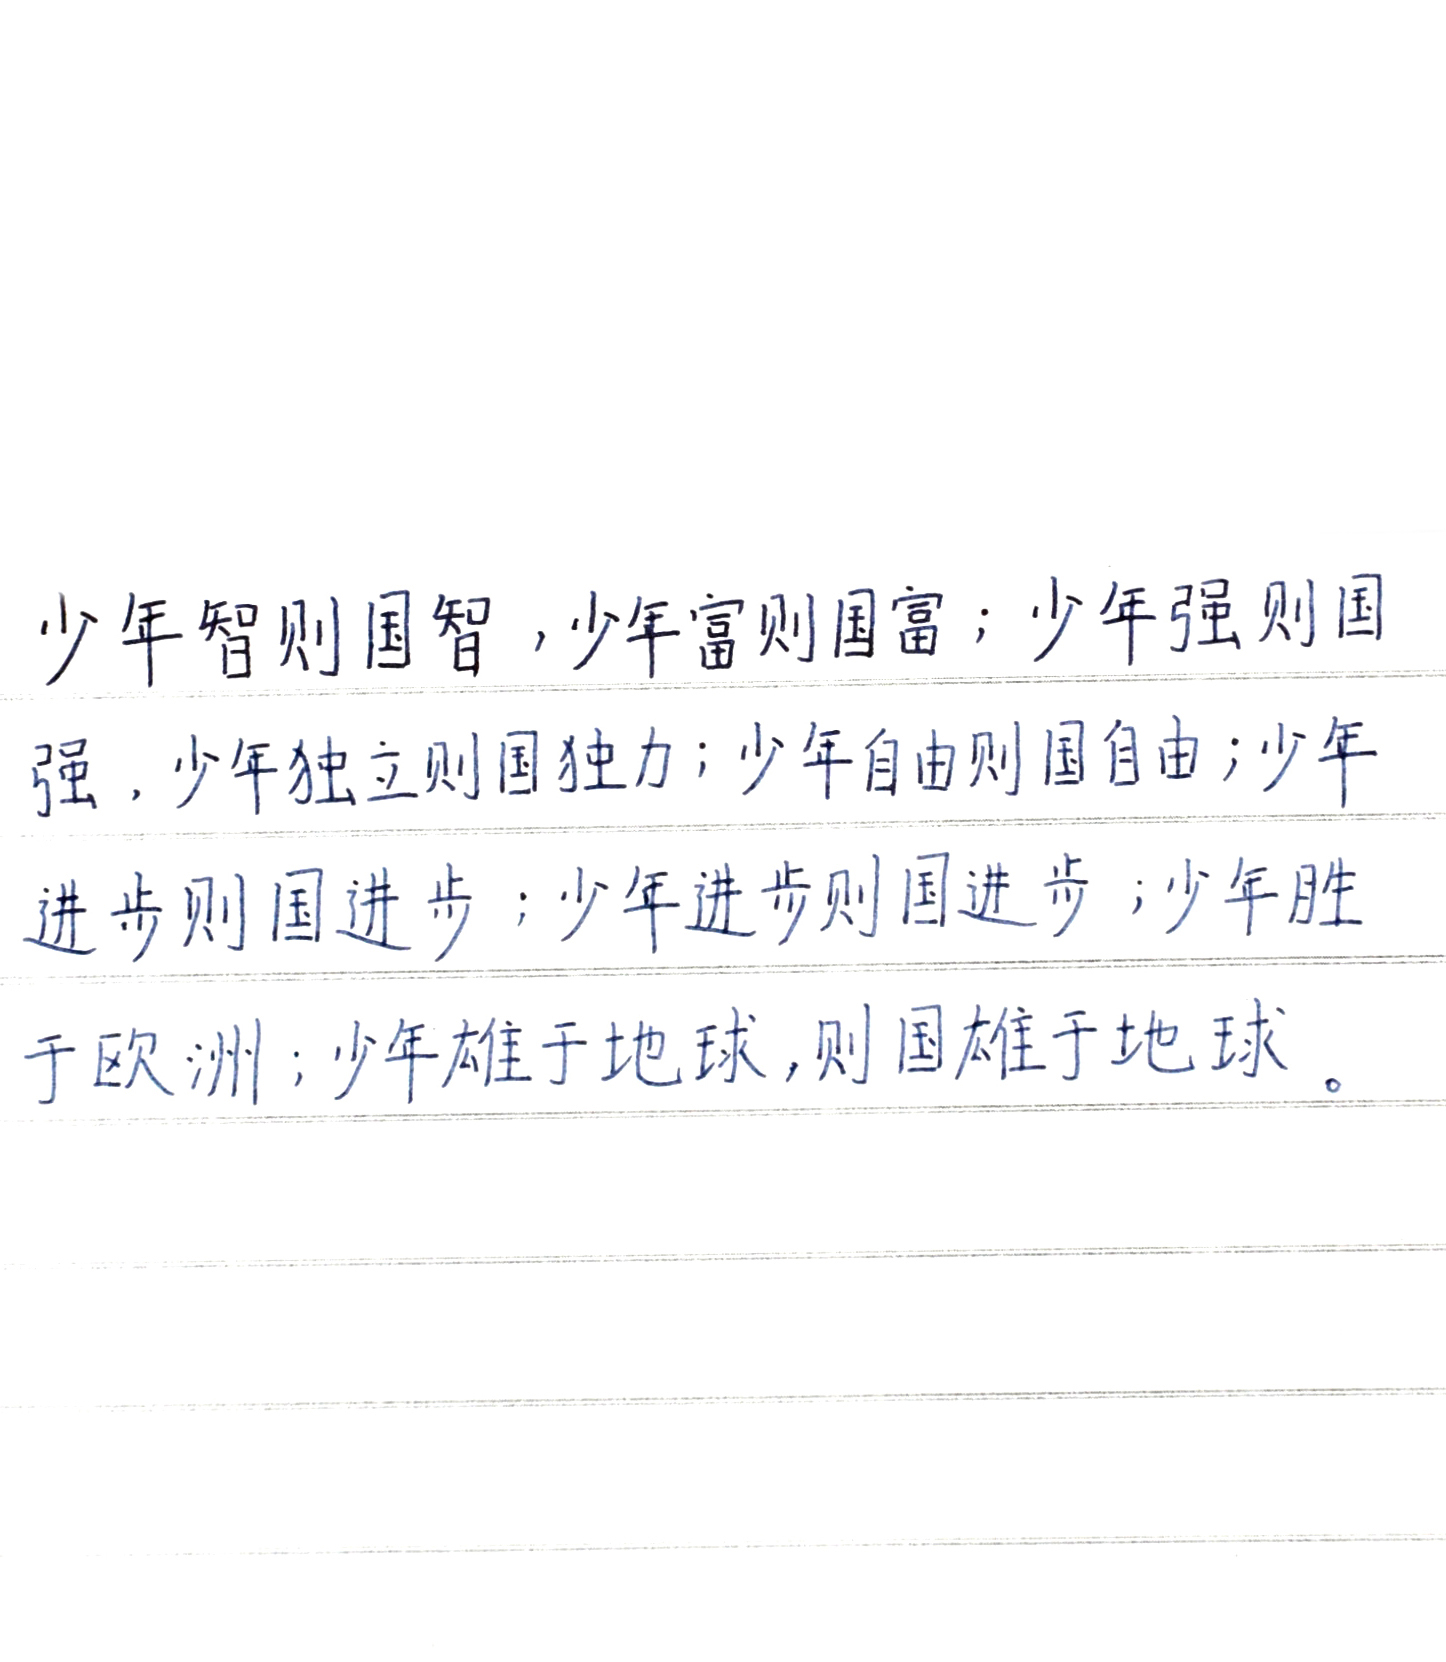 少年智则国智,少年富则国富;少年强则国
强,少年独立则国独力;少年自由则国自由;少年
进步则国进步;少年进步则国进步;少年胜
于欧洲;少年雄于地球,则国雄于地球。